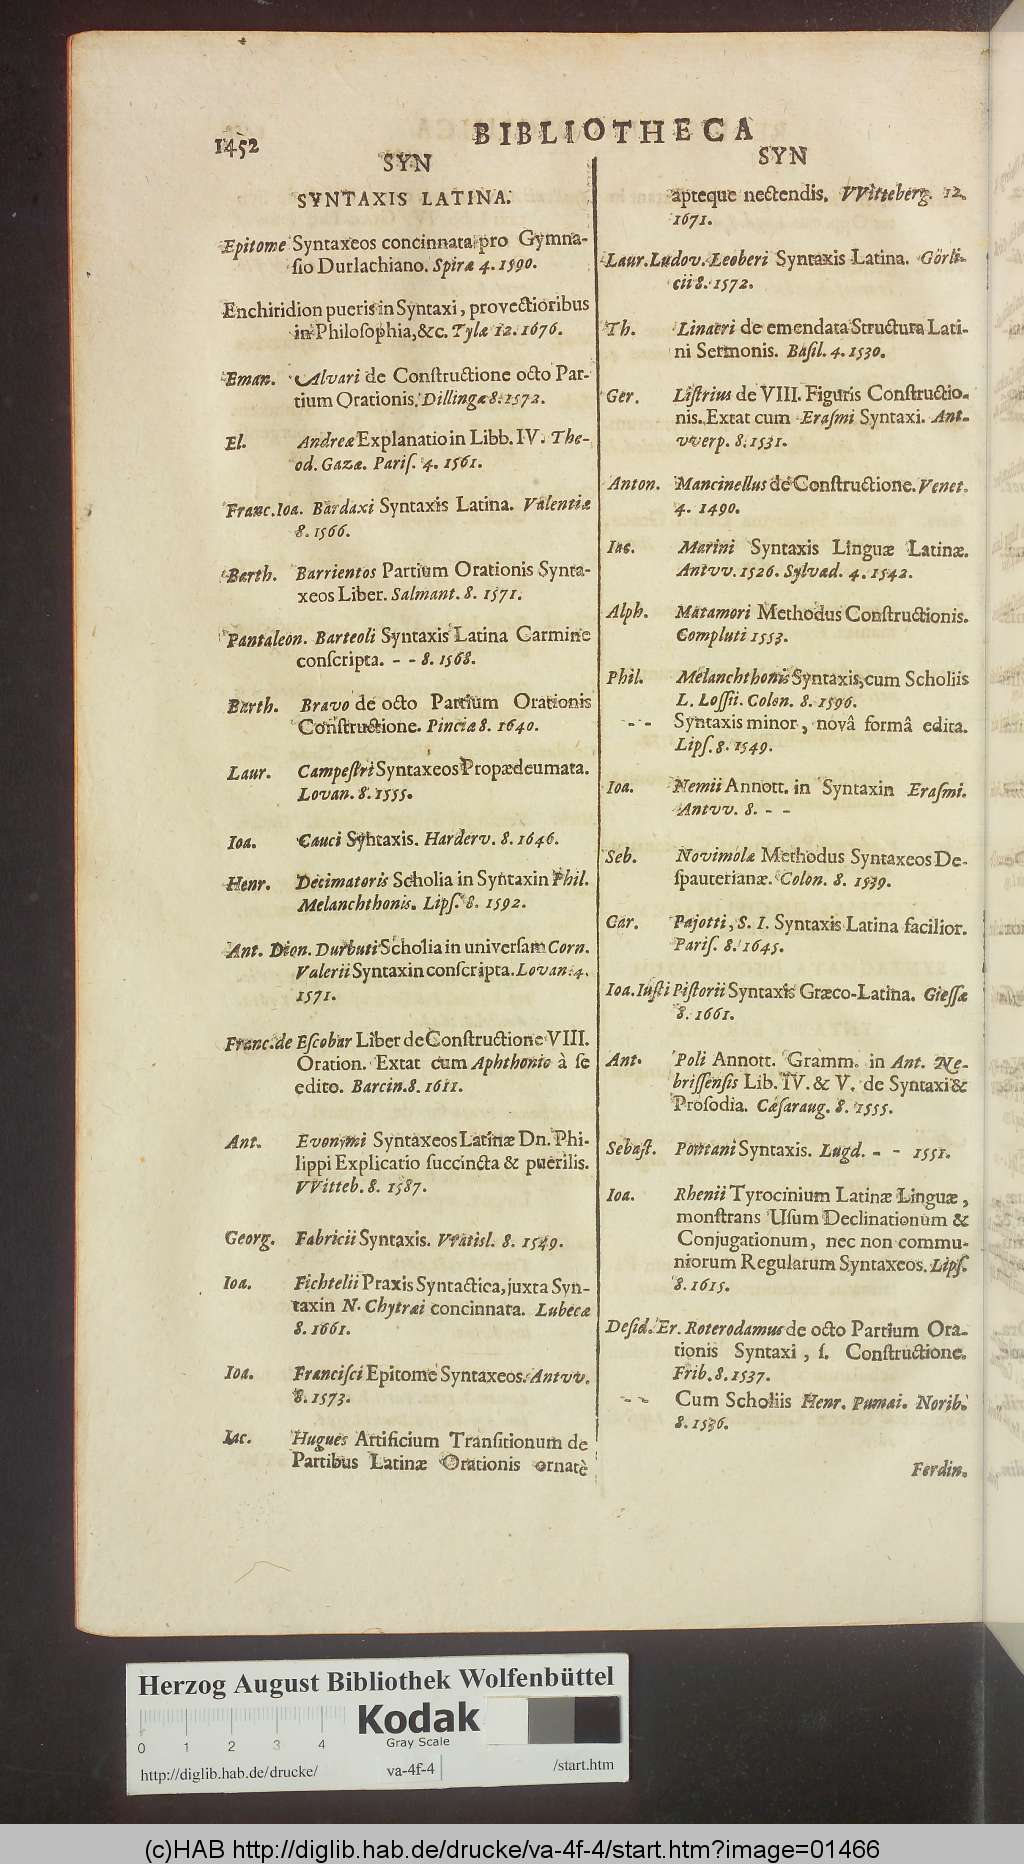 1452
BIBLIOTHECA
SYN
SYNTAXIS LATINA.
Epitome Syntaxeos concinnata pro Gymna-
ſio Durlachiano. Spiræ 4. 1590.
Enchiridion pueris in Syntaxi, provectioribus
in Philoſophia, &c. Tylæ 12. 1676.
Eman. Alvari de Conſtructione octo Par-
tium Orationis. Dillingæ 8. 1572.
El. Andreæ Explanatio in Libb. IV. The-
od. Gazæ. Pariſ. 4. 1561.
Franc. Ioa. Bardaxi Syntaxis Latina. Valentiæ
8. 1566.
Barth. Barrientos Partium Orationis Synta-
xeos Liber. Salmant. 8. 1571.
Pantaleon. Barteoli Syntaxis Latina Carmine
conſcripta. - - 8. 1568.
Barth. Bravo de octo Partium Orationis
Conſtructione. Pinciæ 8. 1640.
Laur. Campeſtri Syntaxeos Propædeumata.
Lovan. 8. 1555.
Ioa. Cauci Syntaxis. Harderv. 8. 1646.
Henr. Decimatoris Scholia in Syntaxin Phil.
Melanchthonis. Lipſ. 8. 1592.
Ant. Dion. Durbuti Scholia in univerſam Corn.
Valerii Syntaxin conſcripta. Lovan. 4.
1571.
Franc. de Eſcobar Liber de Conſtructione VIII.
Oration. Extat cum Aphthonio à ſe
edito. Barcin. 8. 1611.
Ant. Evonymi Syntaxeos Latinæ Dn. Phi-
lippi Explicatio ſuccincta & puerilis.
VVitteb. 8. 1587.
Georg. Fabricii Syntaxis. Vratisl. 8. 1549.
Ioa. Fichtelii Praxis Syntactica, juxta Syn-
taxin N. Chytræi concinnata. Lubecæ
8. 1661.
Ioa. Franciſci Epitome Syntaxeos. Antvv.
8. 1573.
Iac. Hugues Artificium Tranſitionum de
Partibus Latinæ Orationis ornatè
SYN
apteque nectendis. VVitteberg. 12.
1671.
Laur. Ludov. Leoberi Syntaxis Latina. Görli-
cii 8. 1572.
Th. Linacri de emendata Structura Lati-
ni Sermonis. Baſil. 4. 1530.
Ger. Liſtrius de VIII. Figuris Conſtructio-
nis. Extat cum Eraſmi Syntaxi. Ant-
vverp. 8. 1531.
Anton. Mancinellus de Conſtructione. Venet.
4. 1490.
Iac. Marini Syntaxis Linguæ Latinæ.
Antvv. 1526. Sylvæd. 4. 1542.
Alph. Matamori Methodus Conſtructionis.
Compluti 1553.
Phil. Melanchthonis Syntaxis, cum Scholiis
L. Loſſii. Colon. 8. 1596.
- - Syntaxis minor, novâ formâ edita.
Lipſ. 8. 1549.
Ioa. Nemii Annott. in Syntaxin Eraſmi.
Antvv. 8. - -
Seb. Novimolæ Methodus Syntaxeos De-
ſpauterianæ. Colon. 8. 1539.
Car. Pajotti, S. I. Syntaxis Latina facilior.
Pariſ. 8. 1645.
Ioa. Iuſti Piſtorii Syntaxis Græco-Latina. Gieſſæ
8. 1661.
Ant. Poli Annott. Gramm. in Ant. Ne-
briſſenſis Lib. IV. & V. de Syntaxi &
Proſodia. Cæſaraug. 8. 1555.
Sebaſt. Pontani Syntaxis. Lugd. - - 1551.
Ioa. Rhenii Tyrocinium Latinæ Linguæ,
monſtrans Uſum Declinationum &
Conjugationum, nec non commu-
niorum Regularum Syntaxeos. Lipſ.
8. 1615.
Deſid. Er. Roterodamus de octo Partium Ora-
tionis Syntaxi, ſ. Conſtructione.
Frib. 8. 1537.
- - Cum Scholiis Henr. Pumæi. Norib.
8. 1536.
Ferdin.
Herzog August Bibliothek Wolfenbüttel
Kodak
Gray Scale
0 1 2 3 4
http://diglib.hab.de/drucke/ va-4f-4 /start.htm
(c)HAB http://diglib.hab.de/drucke/va-4f-4/start.htm?image=01466